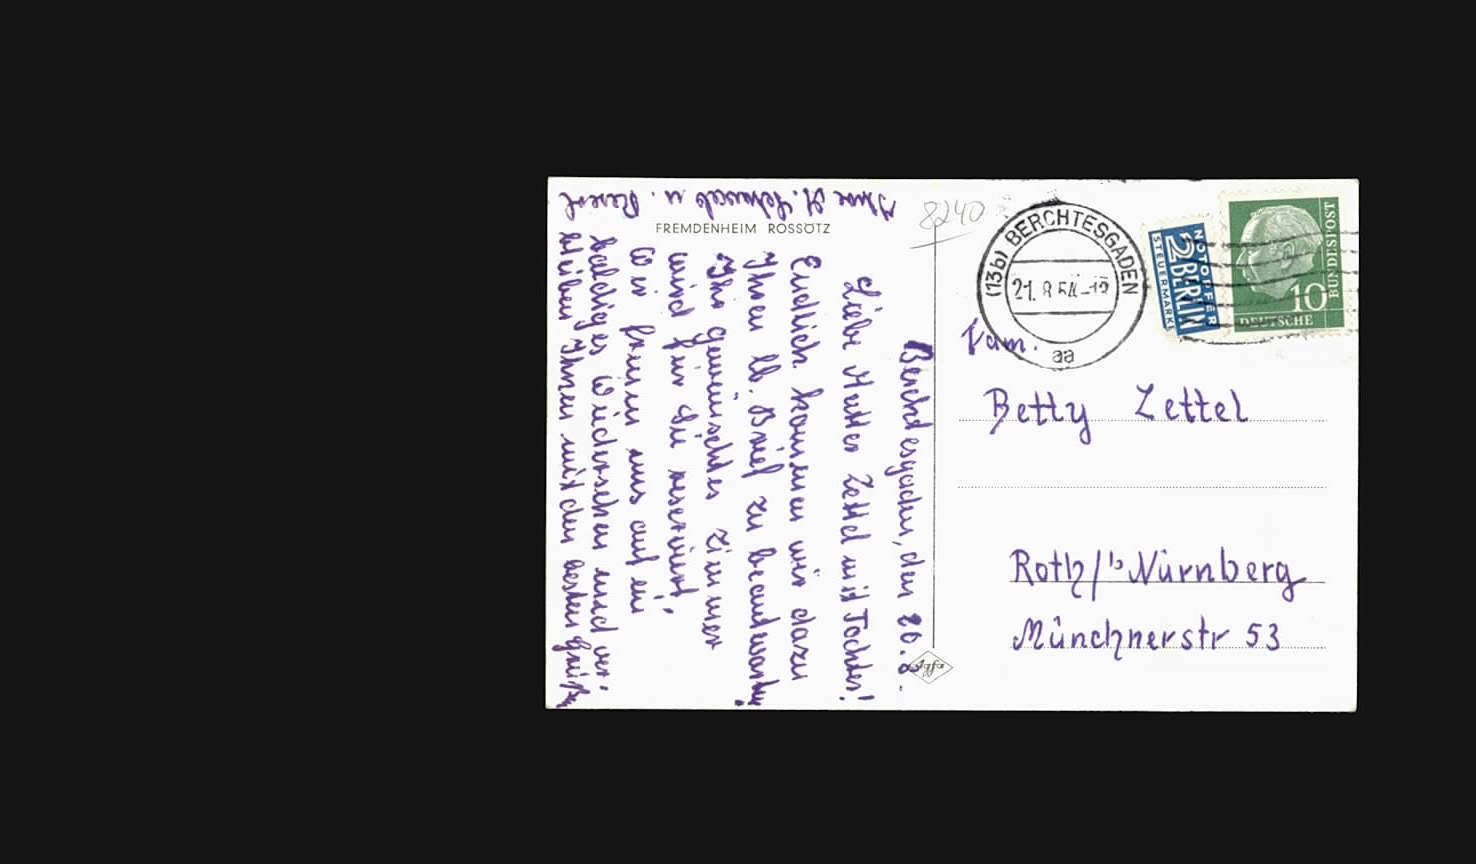 FREMDENHEIM ROSSÖTZ
Berchtesgaden, den 20.8.
Liebe Mutter Zettel mit Tochter!
Endlich kommen wir dazu
Ihren lb. Brief zu beantworten,
Ihr gewünschtes Zimmer
wird für Sie reserviert,
Wir freuen uns auf ein
baldiges Wiedersehen und ver-
bleiben Ihnen mit den besten Grüßen
Ihre u.
8240
(13b) BERCHTESGADEN
21.8.54-12
aa
NOTOPFER
2 BERLIN
STEUERMARKE
10
DEUTSCHE
BUNDESPOST
Fam.
Betty Zettel
Roth/b Nürnberg
Münchnerstr 53
Agfa